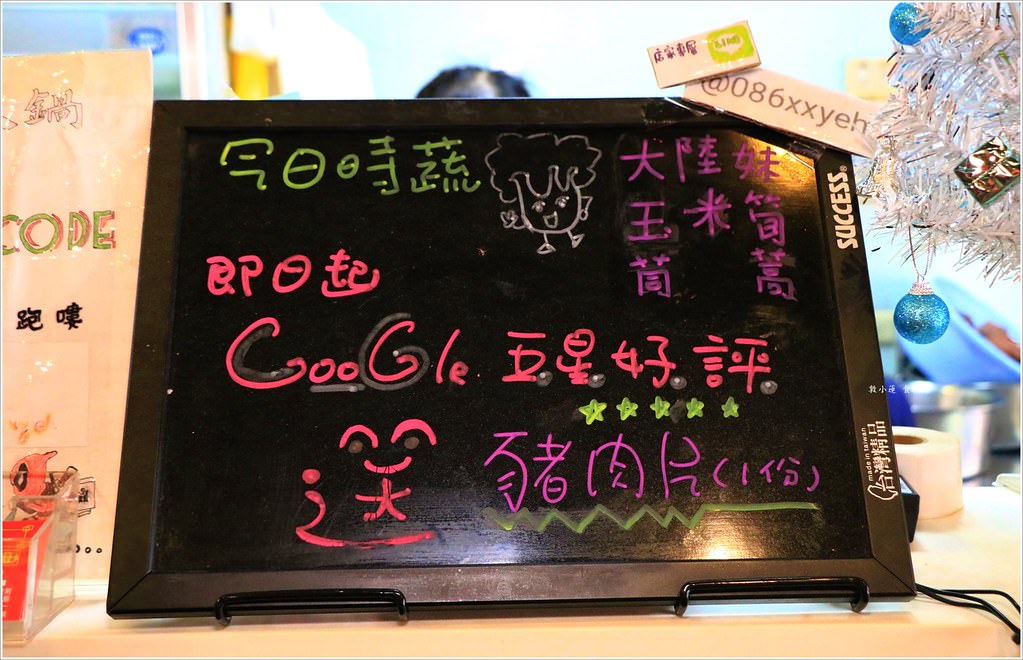 鍋
CODE
跑嘍
店家專屬
@086xxyeh
SUCCESS®
今日時蔬
大陸妹
玉米筍
茼蒿
即日起
GooGle 五星好評
送 豬肉片(1份)
made in taiwan
台灣精品